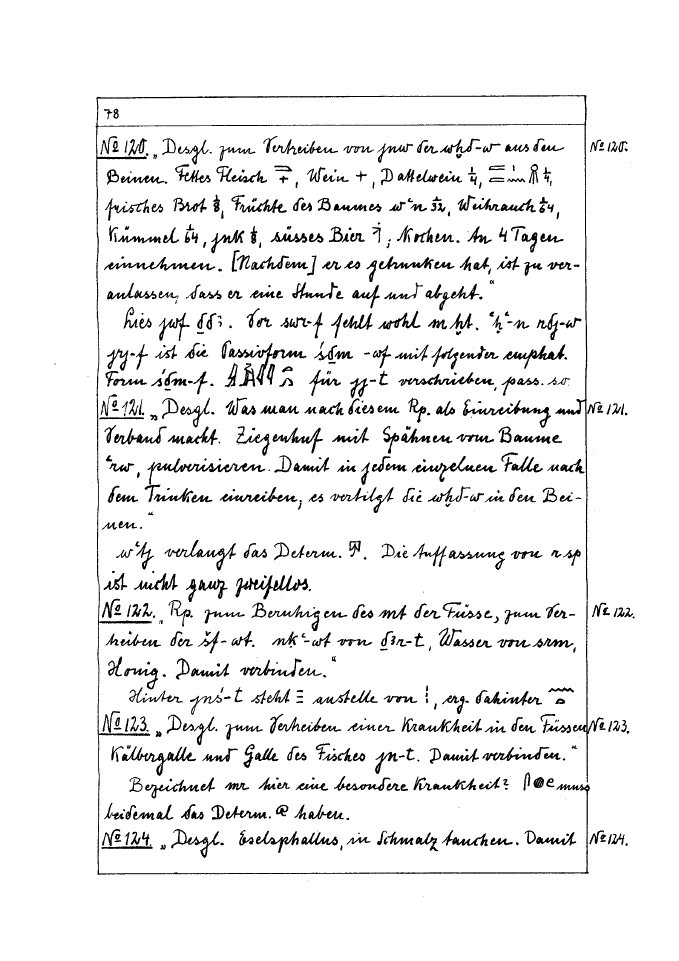 78
№ 120. „Desgl. zum Vertreiben von jnw der wḫd-w aus den № 120.
Beinen. Fettes Fleisch, Wein +, Dattelwein ¼, ¼,
frisches Brot ⅛, Früchte des Baumes wʿn 1/32, Weihrauch 1/64,
Kümmel 1/64, jnk ⅛, süsses Bier; Kochen. An 4 Tagen
einnehmen. [Nachdem] er es getrunken hat, ist zu ver-
anlassen, dass er eine Stunde auf und abgeht."
Lies jwf ḏdꜣ. Vor swr-f fehlt wohl m ḫt. ʿḥʿ-n rdj-w
jy-f ist die Passivform śḏm-wf mit folgender emphat.
Form śḏm-f. für jj-t verschrieben, pass. so
№ 121. „Desgl. Was man nach diesem Rp. als Einreibung und № 121.
Verband macht. Ziegenhuf mit Spähnen vom Baume
ʿrw, pulverisieren. Damit in jedem einzelnen Falle nach
dem Trinken einreiben; es vertilgt die wḫd-w in den Bei-
nen."
wʿtj verlangt das Determ. Die Auffassung von r sp
ist nicht ganz zweifellos.
№ 122. „Rp. zum Beruhigen des mt der Füsse, zum Ver- № 122.
treiben der šf-wt. nkʿ-wt von ḏꜣr-t, Wasser von srm,
Honig. Damit verbinden."
Hinter jnś-t steht anstelle von, erg. dahinter
№ 123. „Desgl. zum Vertreiben einer Krankheit in den Füssen № 123.
Kälbergalle und Galle des Fisches jn-t. Damit verbinden."
Bezeichnet mr hier eine besondere Krankheit? muss
beidemal das Determ. haben.
№ 124. „Desgl. Eselsphallus, in Schmalz tauchen. Damit № 124.